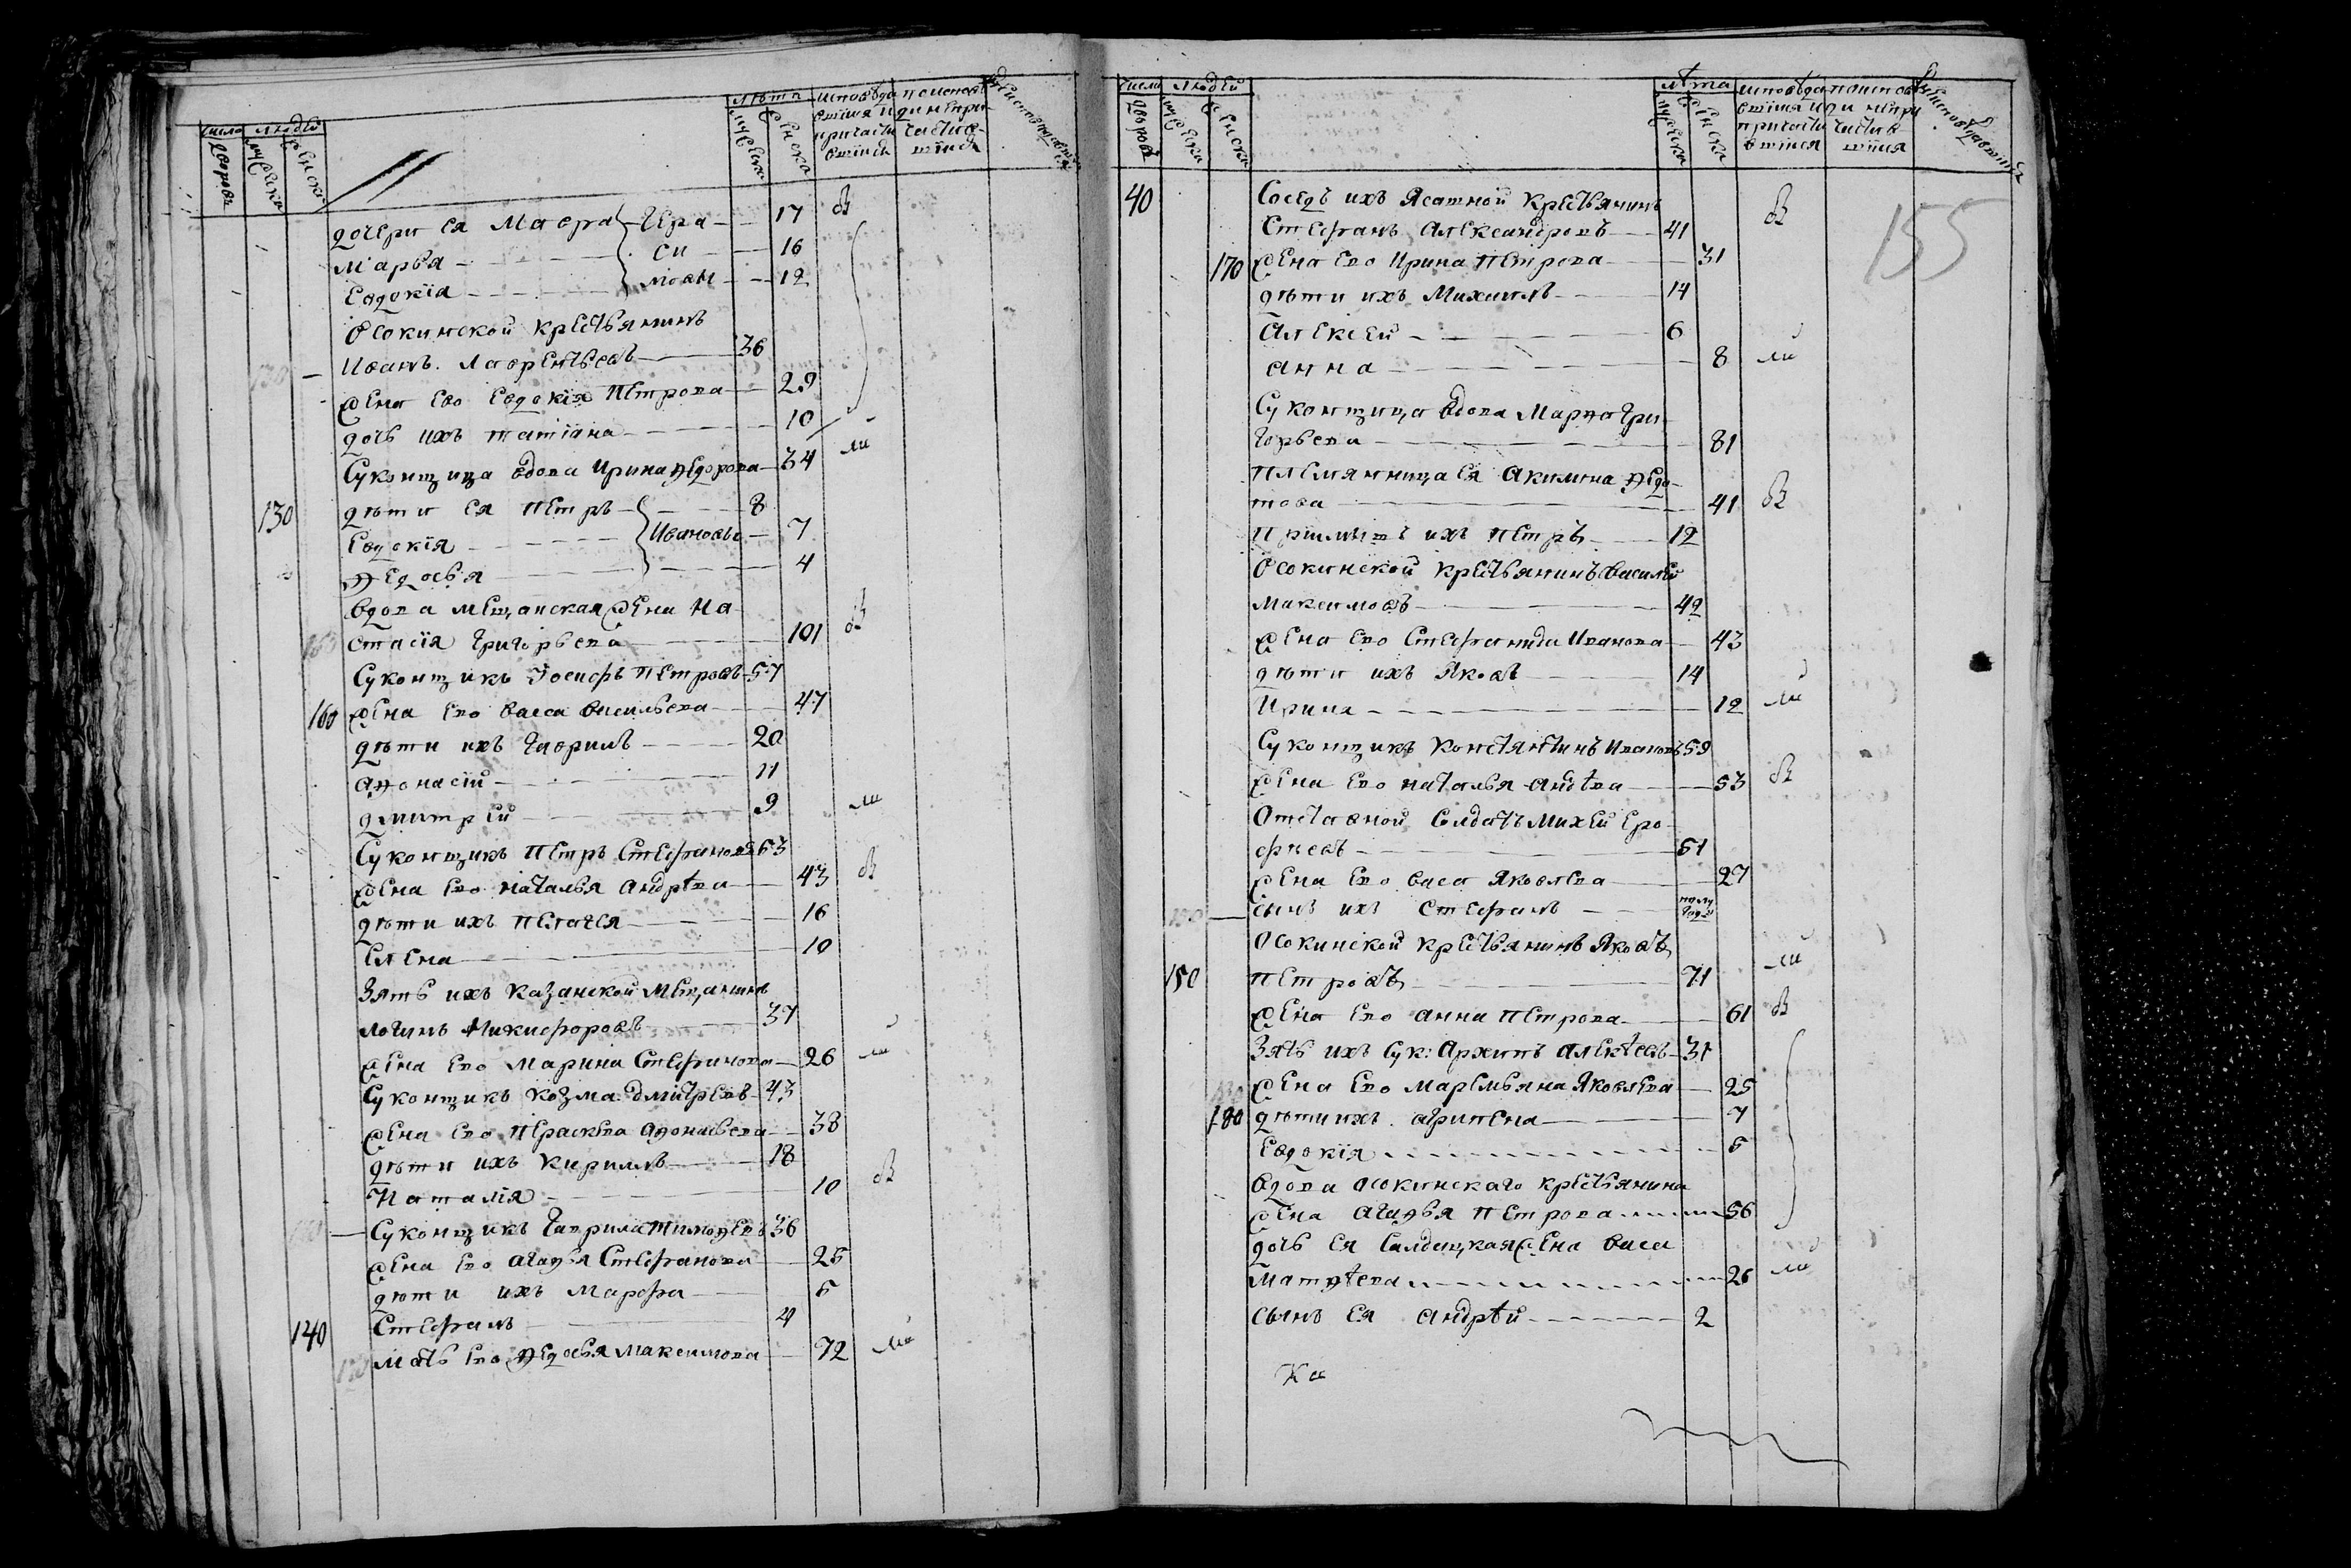 число людей
дворовъ мужеска женска
лѣта
мужеска женска
исповѣда
вшїяся и
причасти
вшїися
дочери ея Мавра Гера 17 в
Марья си 16
Евдокїа мовы 12
Осокинской крестьянинъ
Иванъ Лаврентьевъ 36
жена ево Евдокїя Петрова 29
дочь ихъ татїана 10
Суконщица вдова Ирина Ѳедорова 34 ма
130 дѣти ея Петръ 8
Евдокїя Ивановы 7
Ѳедосья 4
вдова мещанская жена На
стасїя Григорьева 101 в
Суконщикъ Іосифъ Петровъ 57
160 жена ево васса васильева 47
дѣти ихъ Гаврилъ 20
Аѳонасїй 11
дмитрей 9 ма
Суконщикъ Петръ Стефановъ 53
жена ево наталья андрѣева 43 в
дѣти ихъ пелагея 16
Елена 10
Зять ихъ казанской мещанинъ
логинъ Никифоровъ 37
жена ево Марина Стефанова 26 ма
Суконщикъ козма дмитрѣевъ 43
жена ево Прасковва аѳонасьева 38
дѣти ихъ кирилъ 18
Наталїя 10 в
Суконщикъ Гаврила тимоѳеевъ 36
жена ево агаѳья Стефанова 25
дѣти ихъ Марфа 5
140 Стефанъ 4
мать ево Ѳедосья максимова 72 ма
число людей
дворовъ мужеска женска
лѣта
мужеска женска
исповѣда
вшїяся и
причасти
вшїися
155
40 Соседъ ихъ Ясашной крестьянинъ
Стефанъ Александровъ 41 в
170 жена ево Ирина Петрова 31
дѣти ихъ Михаилъ 14
Алексей 6
анна 8 ма
Суконщица вдова Марѳа Гри
горьева 81
племянница ея акилина Ѳедо
това 41 в
Приимышъ ихъ Петръ 12
Осокинской крестьянинъ василей
максимовъ 42
жена ево Стефанида Иванова 43
дѣти ихъ Яковъ 14
Ирина 12 ма
Суконщикъ Констянтинъ Ивановъ 59
жена ево наталья андѣева 53 в
Отставной Солдатъ Михей Еро
фѣевъ 51
жена ево васа Яковлева 27
сынъ ихъ Стефанъ полу года
Осокинской крестьянинъ Яковъ
150 Петровъ 71 ма
жена ево анна Петрова 61 в
Зять ихъ сук: Архипъ алексѣевъ 31
жена ево маремьяна Яковлева 25
180 дѣти ихъ агрипена 7
Евдокїя 5
вдова осокинскаго крестьянина
жена агаѳья Петрова 56
дочь ея Салдацкая жена васа
матѳѣева 26 ма
сынъ ея андрѣй 2
Ка